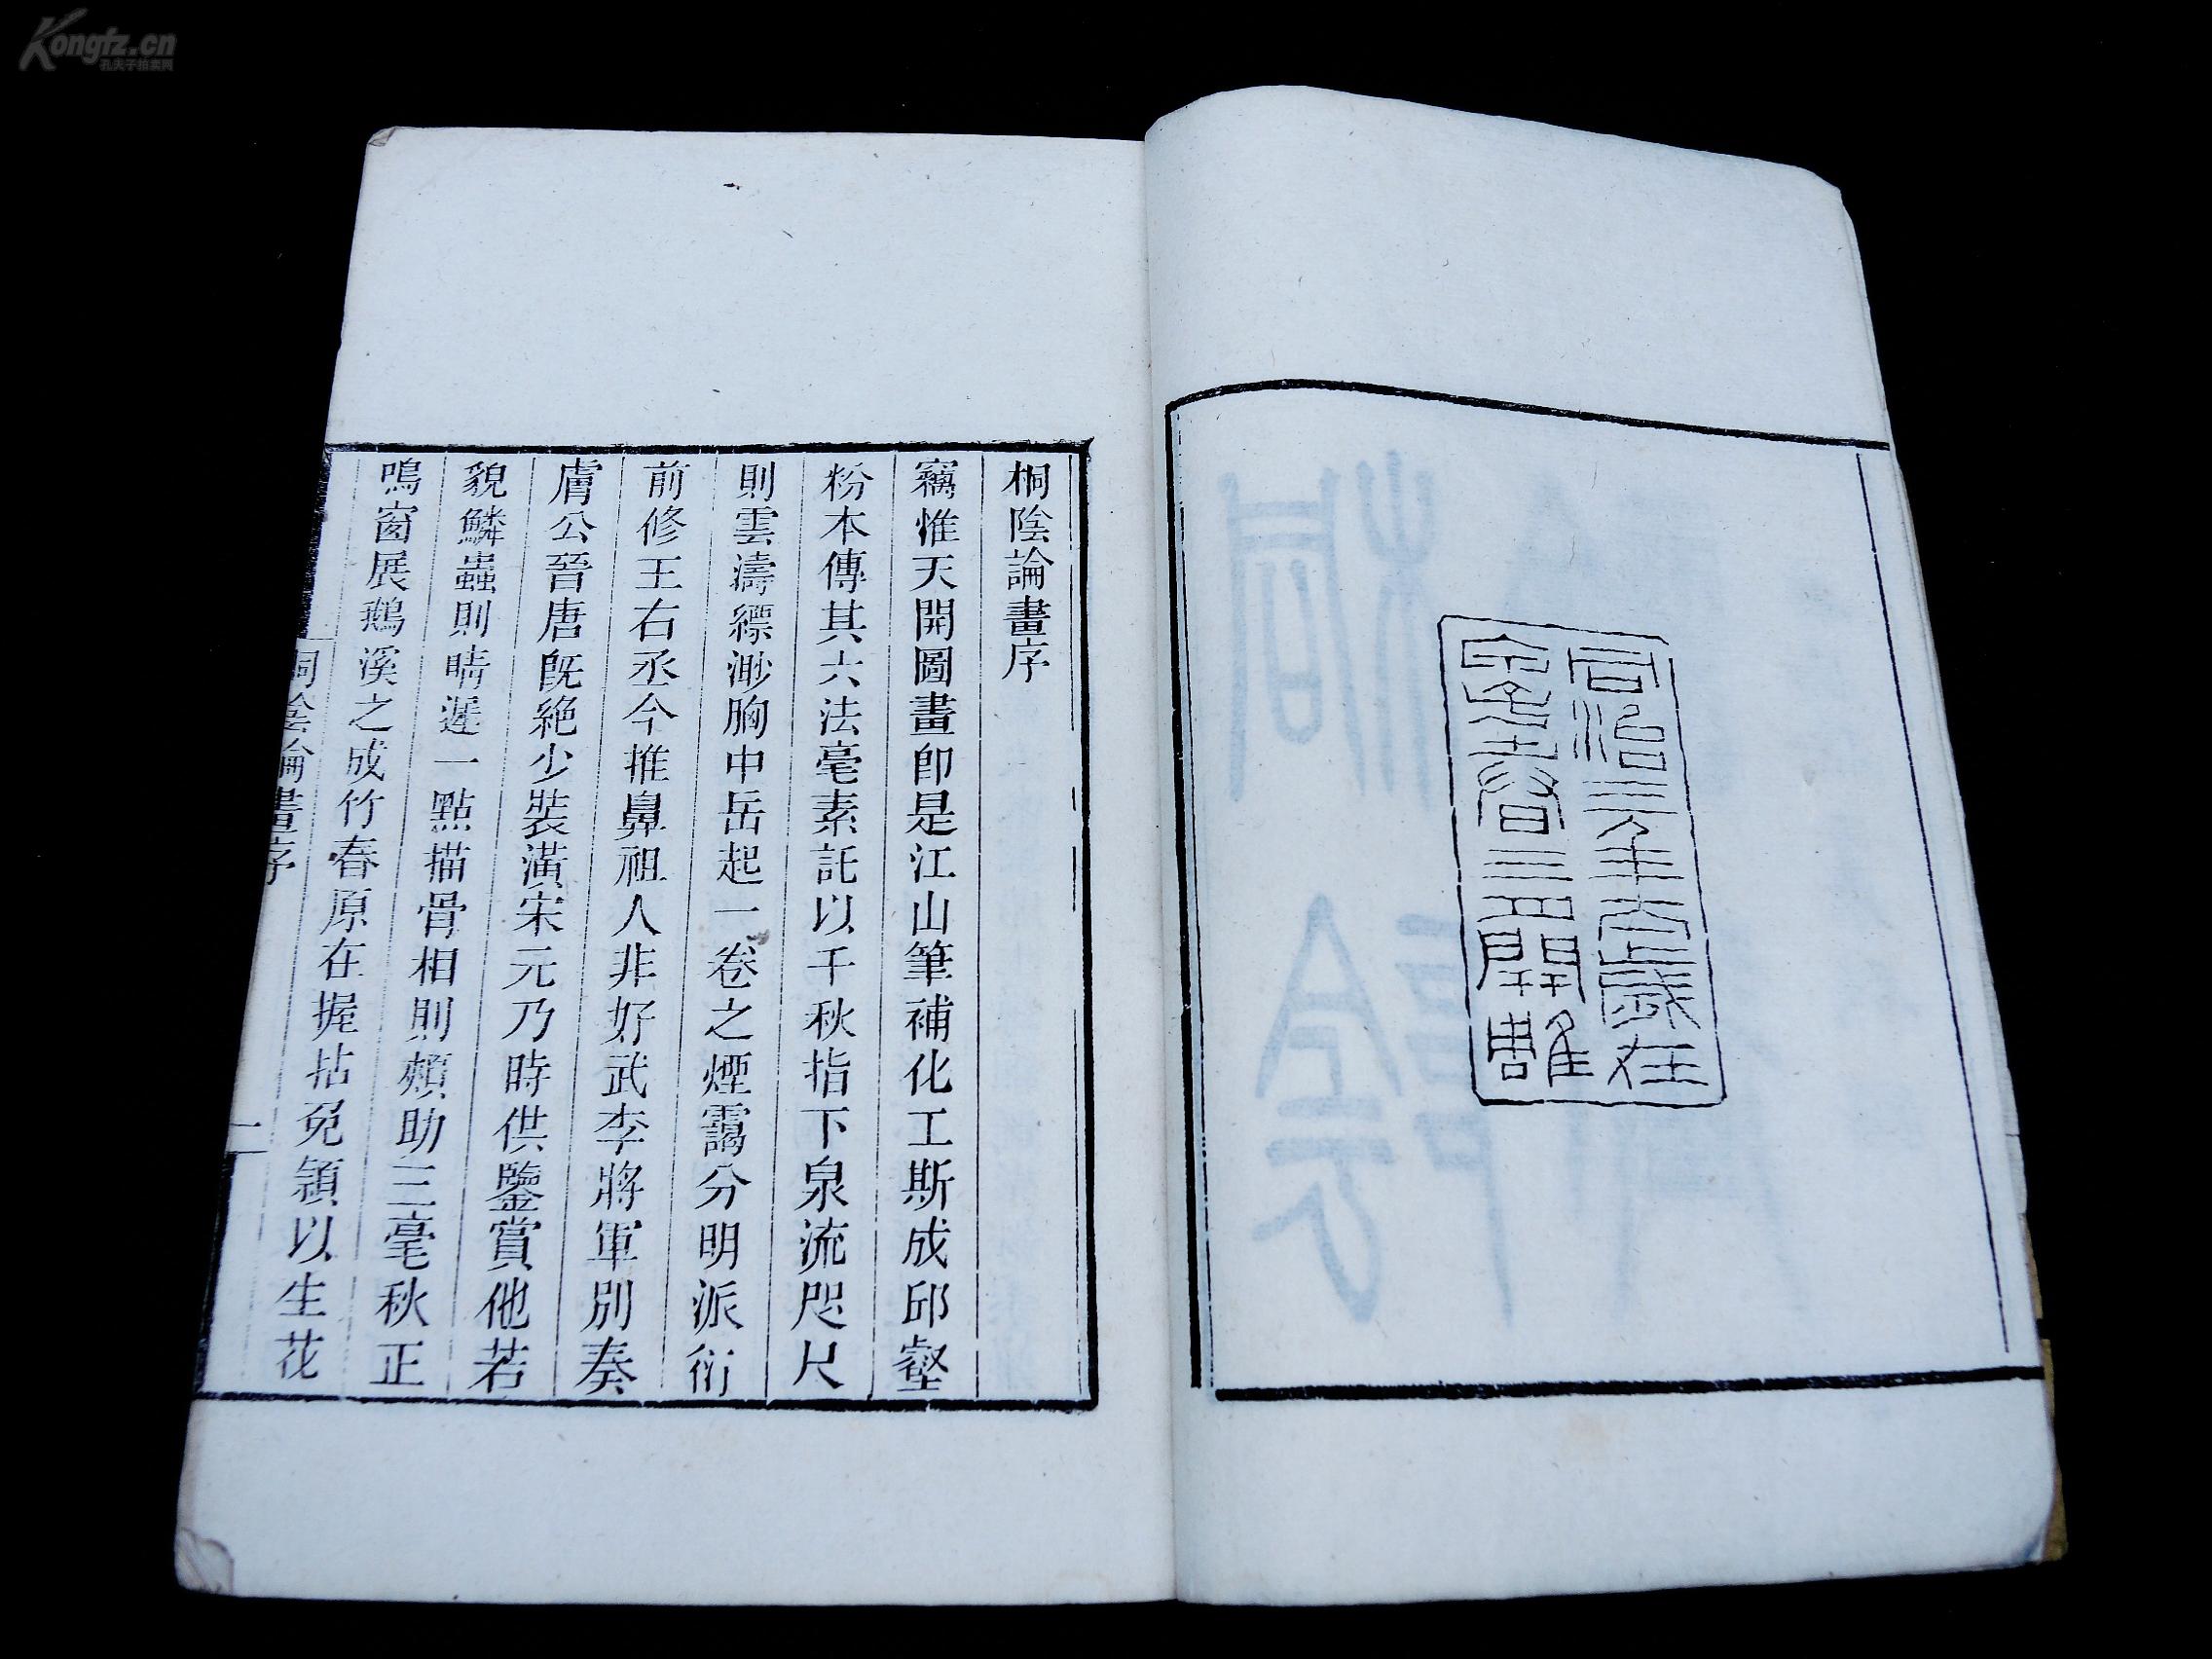 Kongfz.cn
孔夫子拍卖网
同治三年太歲在
春三月開雕
桐陰論畫序
竊惟天開圖畫卽是江山筆補化工斯成邱壑
粉本傳其六法毫素託以千秋指下泉流咫尺
則雲濤縹渺胸中岳起一卷之煙靄分明派衍
前修王右丞今推鼻祖人非好武李將軍別奏
膚公晉唐旣絶少裝潢宋元乃時供鑒賞他若
貌鱗蟲則睛遲一點描骨相則頰助三毫秋正
鳴窗展鵝溪之成竹春原在握拈兔穎以生花
桐陰論畫序
一